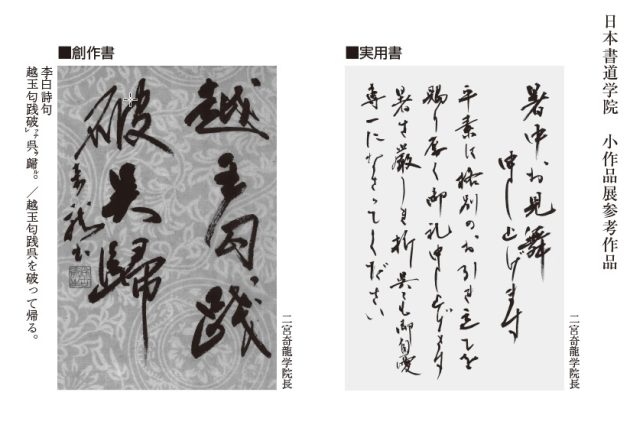 日本書道学院　小作品展参考作品
■実用書
二宮奇龍学院長
暑中お見舞
申し上げます
平素は格別のお引き立てを
賜り厚く御礼申し上げます
暑さ厳しき折 呉々も御自愛
専一になさってください
■創作書
二宮奇龍学院長
越王勾践
破呉歸
奇龍書
李白詩句
越王勾践破ツテレ呉ヲ歸ル。／越王勾践呉を破って帰る。